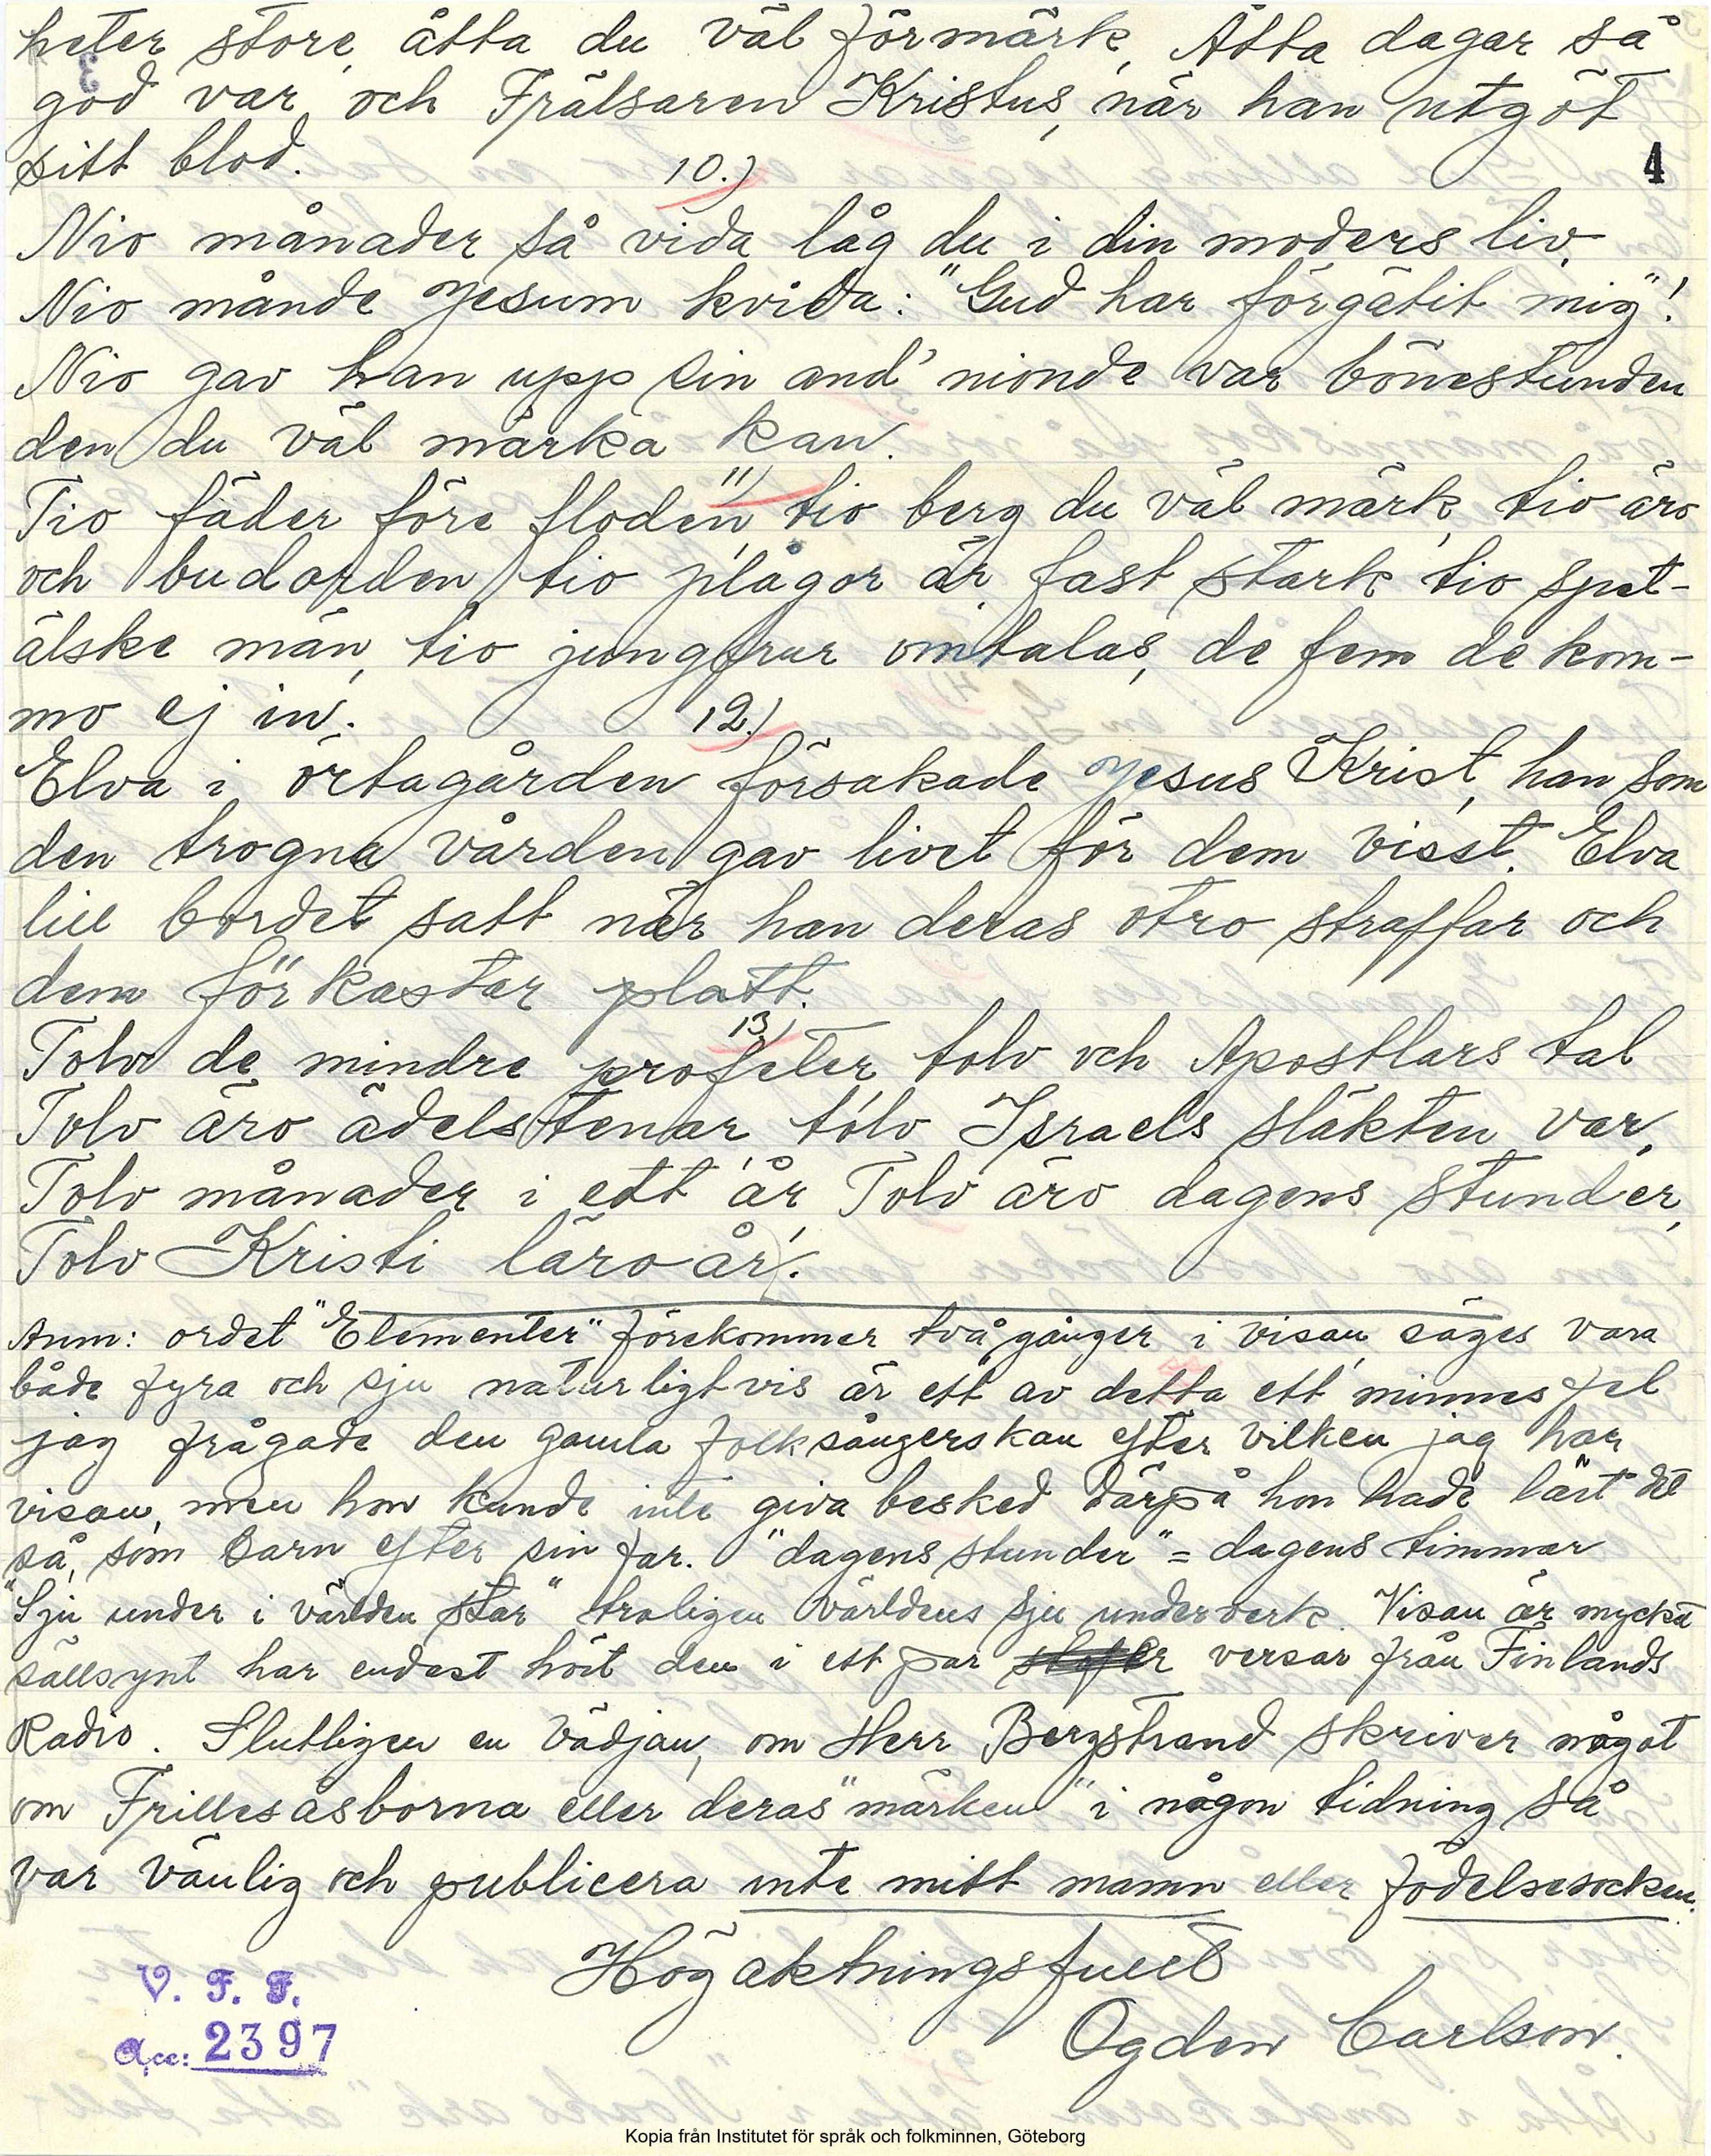 heter store, åtta du väl förmärk, Åtta dagar så
god var, och Frälsaren Kristus, när han utgöt
sitt blod.
4
10.)
Nio månader så vida låg du i din moders liv,
Nio månde Jesum kvida: "Gud har förgätit mig"!
Nio gav han upp sin and' nionde var bönestunden
den du väl märka kan.
11)
Tio fäder före floden, tio berg du väl märk, tio äro
och budorden, tio plågor är fast stark, tio spet-
älske män, tio jungfrur omtalas, de fem de kom-
mo ej in.
12.)
Elva i örtagården försakade Jesus Krist, han som
den trogna vården gav livet för dem visst. Elva
till bordet satt när han deras otro straffar och
dem förkastar platt.
13)
Tolv de mindre profeter tolv och Apostlars tal
Tolv äro ädelstenar, tolv Israels släkten var,
Tolv månader i ett år, Tolv äro dagens stunder,
Tolv Kristi läroår.
Anm: ordet "Elementer" förekommer två gånger i visan, säges vara
både fyra och sju naturligtvis är ett av detta ett minnesfel
jag frågade den gamla folksångerskan efter vilken jag har
visan, men hon kunde inte giva besked därpå hon hade lärt det
så, som barn efter sin far. "dagens stunder" = dagens timmar
"Sju under i världen star" troligen världens sju underverk. Visan är mycket
sällsynt har endast hört den i ett par versar från Finlands
Radio. Slutligen en vädjan, om Herr Bergstrand skriver något
om Frillesåsborna eller deras "märken" i någon tidning så
var vänlig och publicera inte mitt namn eller födelsesocken.
Högaktningsfullt
Ogden Carlson.
V. F. F.
Acc: 2397
Kopia från Institutet för språk och folkminnen, Göteborg